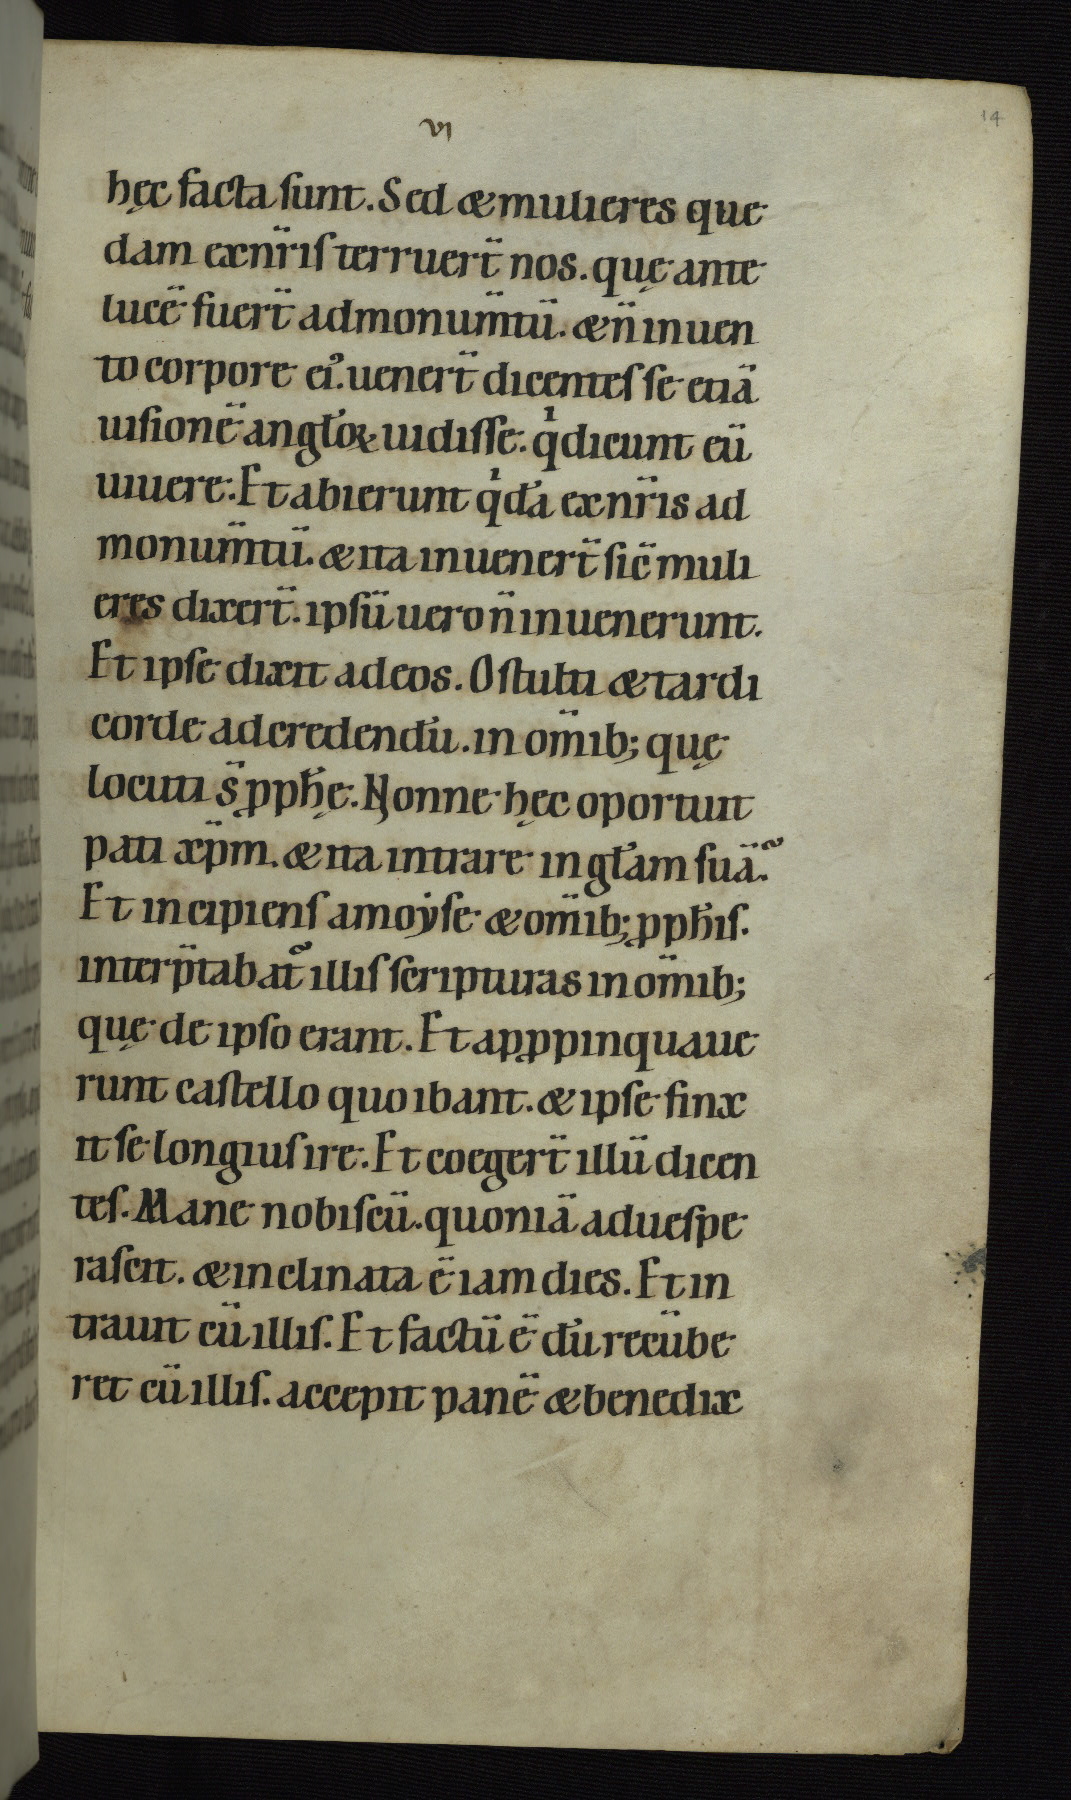 vi
14
hęc facta sunt. Sed & mulieres que
dam ex nr̄is terruer̄t nos. quę ante
lucē fuer̄t ad monum̄tū. & n̄ inuen
to corpore ei᾽. uener̄t dicentes se etiā
uisionē angl̄oꝝ uidisse. qͥ dicunt eū
uiuere. Et abierunt qͥdā ex nr̄is ad
monum̄tū. & ita inuener̄t sic̄ muli
eres dixer̄t. ipsū uero n̄ inuenerunt.
Et ipse dixit ad eos. O stulti & tardi
corde ad credendū. in om̄ib; quę
locuti s̄ ꝓph̄ę. Nonne hęc oportuit
pati xp̄m. & ita intrare in gl̄am suā.
Et incipiens a moẏse & om̄ib; ꝓph̄is.
interp̄tabat᾽ illis scripturas in om̄ib;
quę de ipso erant. Et apꝓpinquaue
runt castello quo ibant. & ipse finx
it se longius ire. Et coeger̄t illū dicen
tes. Mane nobiscū. quoniā aduespe
rascit. & inclinata ē iam dies. Et in
trauit cū illis. Et factū ē dū recūbe
ret cū illis. accepit panē & benedix